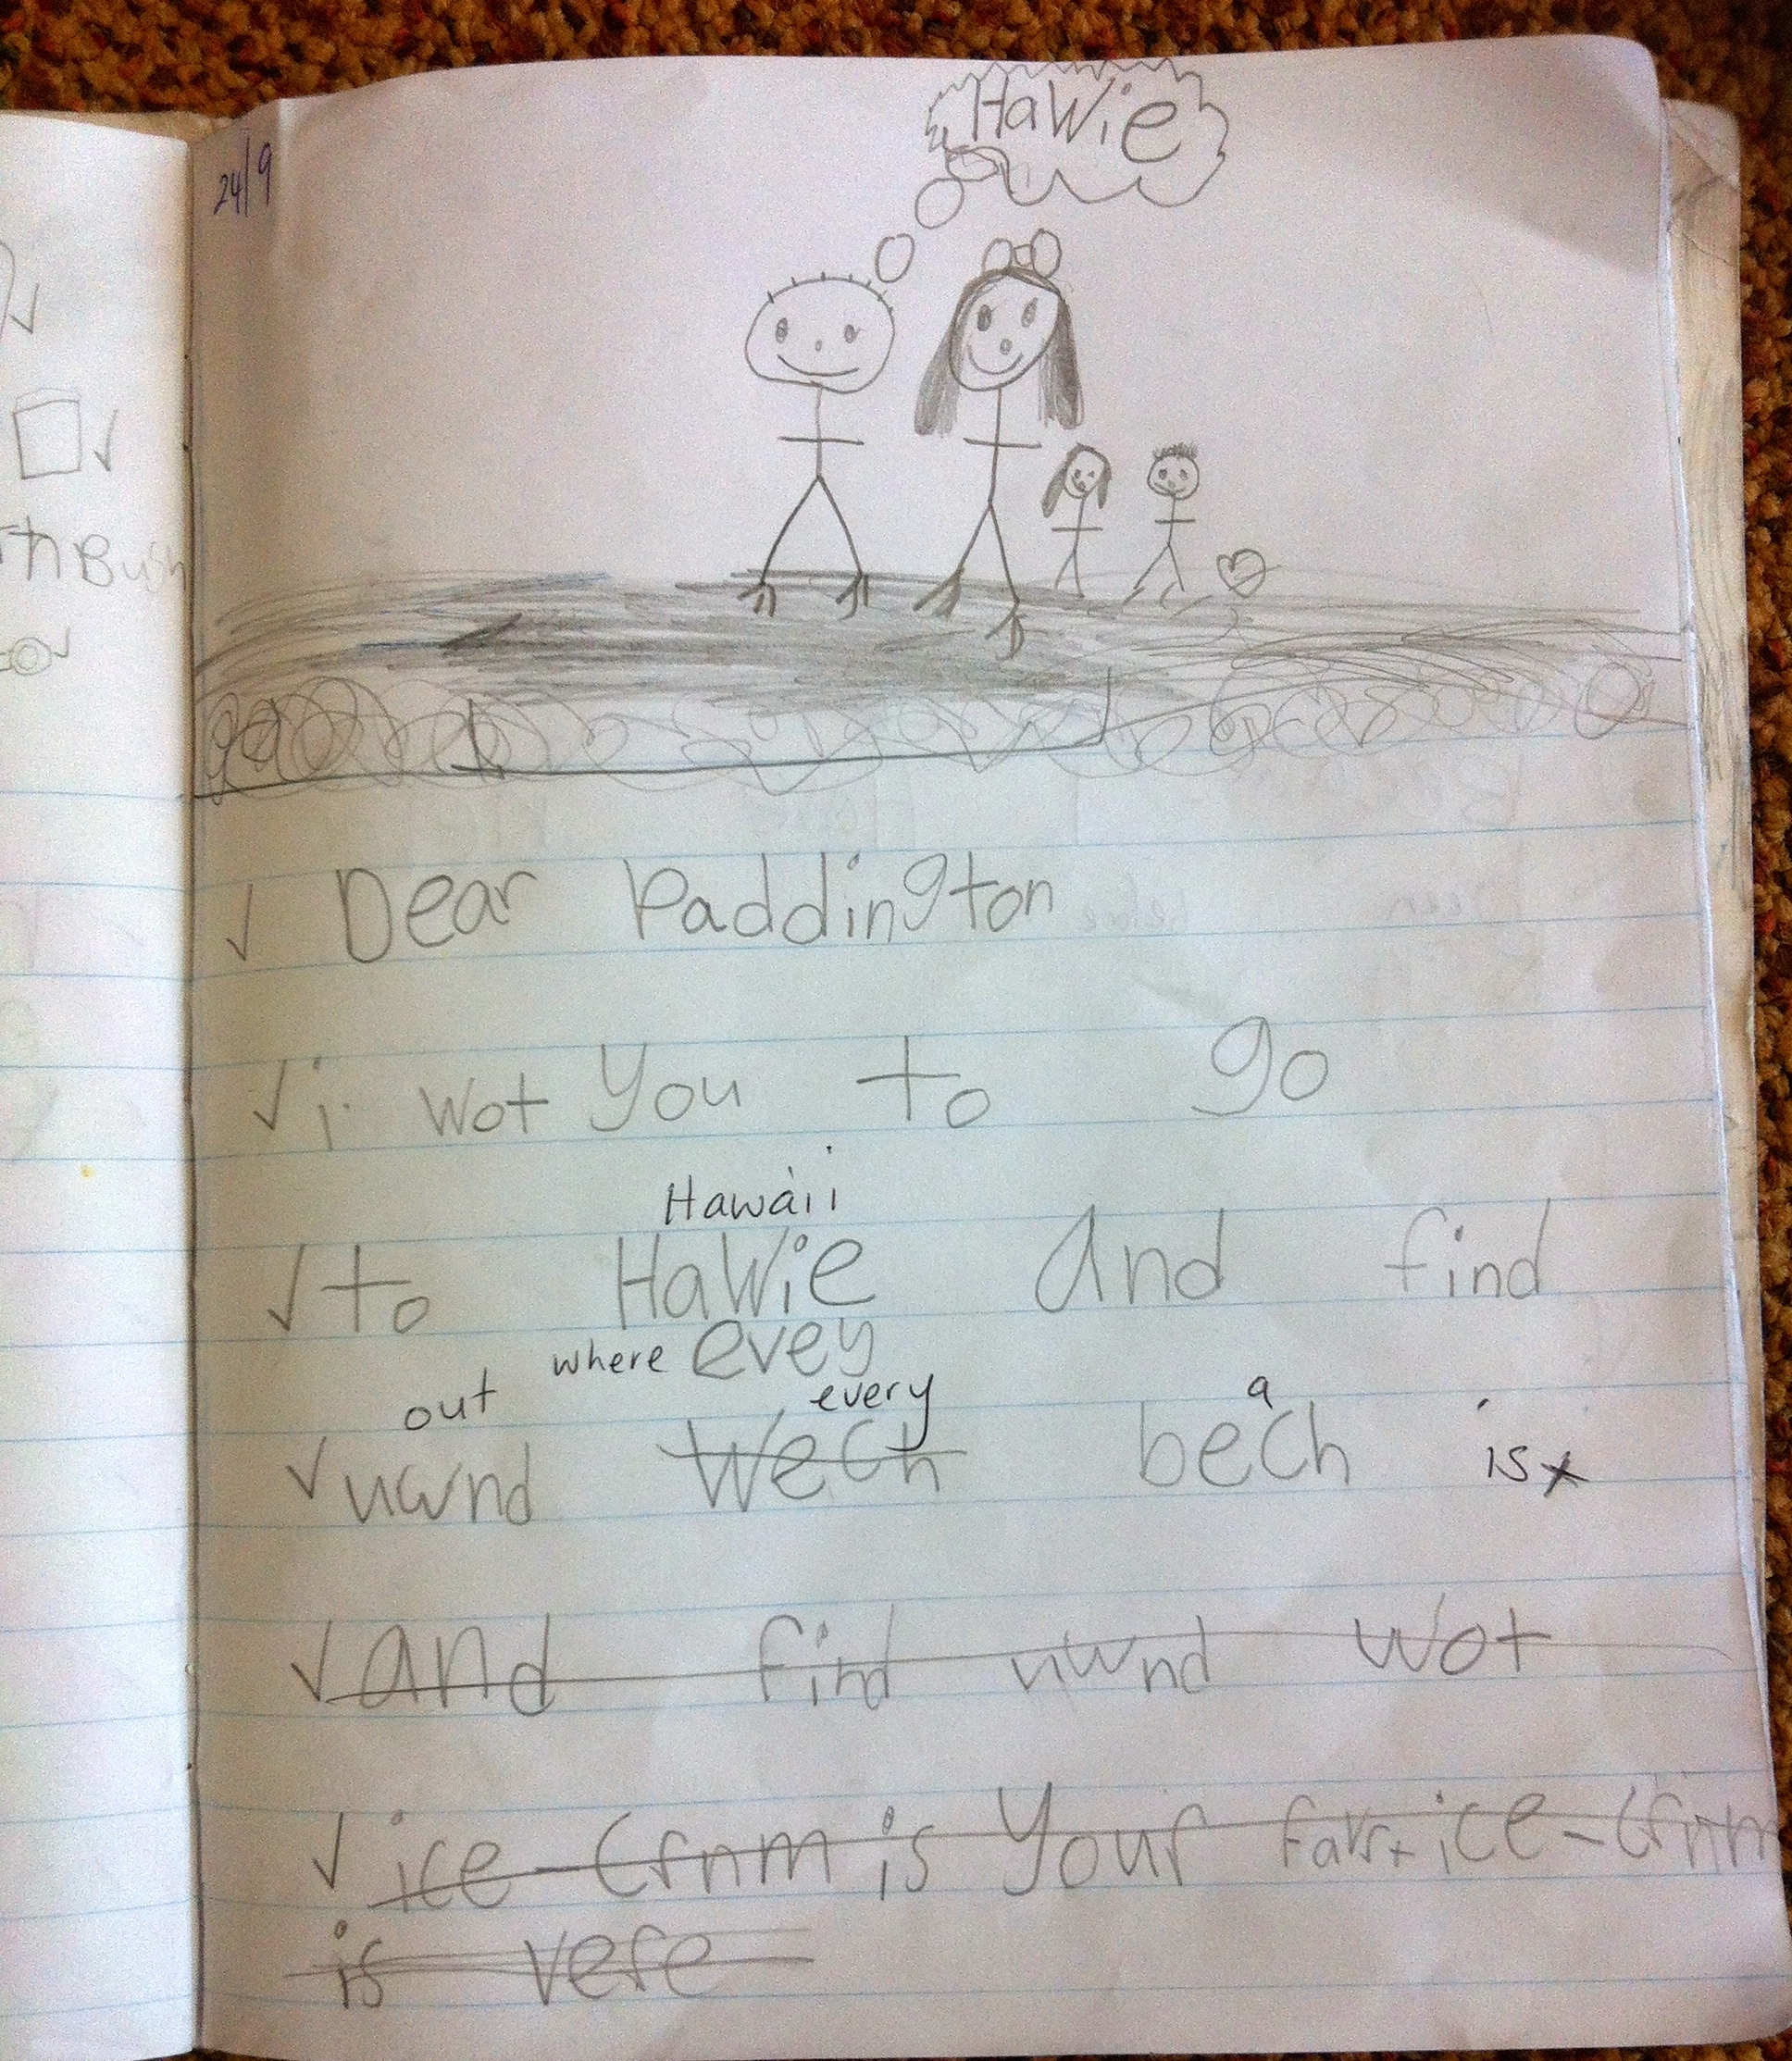 24/9
HaWie
Dear Paddington
i wot you to go
Hawaii
to HaWie And find
where evey
out every a
uwnd wech bech is
and find uwnd wot
ice-Crnm is Your favrt ice-Crnm
is vere